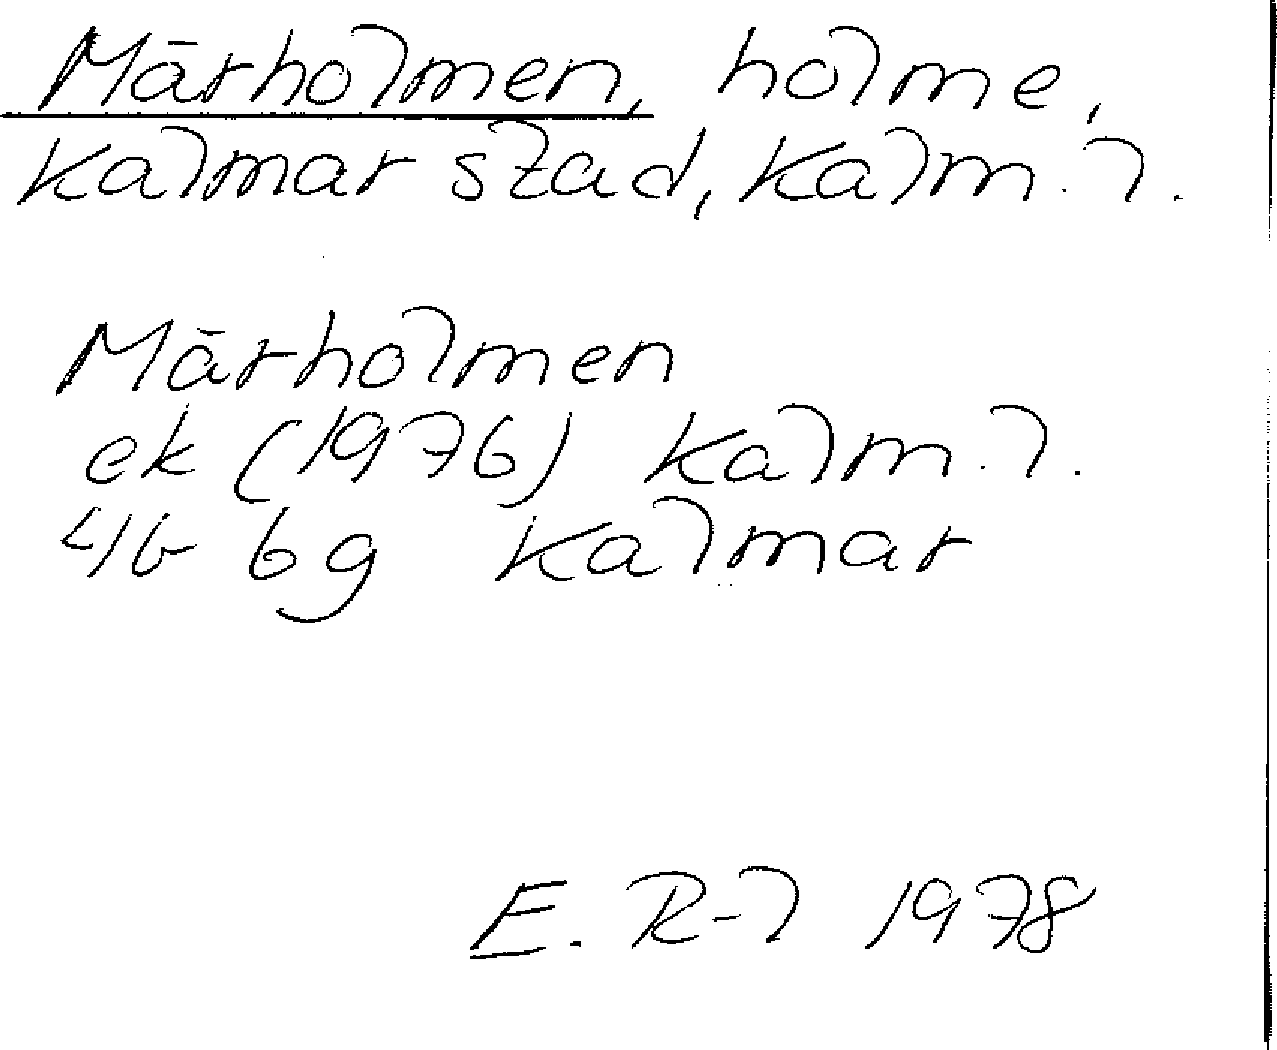 Märholmen, holme,
Kalmar stad, Kalm. l.
Märholmen
ek (1976) Kalm. l.
4G 6g Kalmar
E. R-l 1978